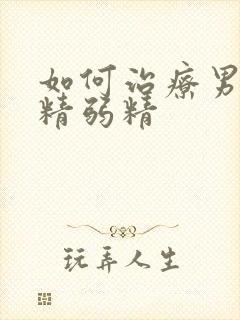 如何治療男
精弱精
玩弄人生